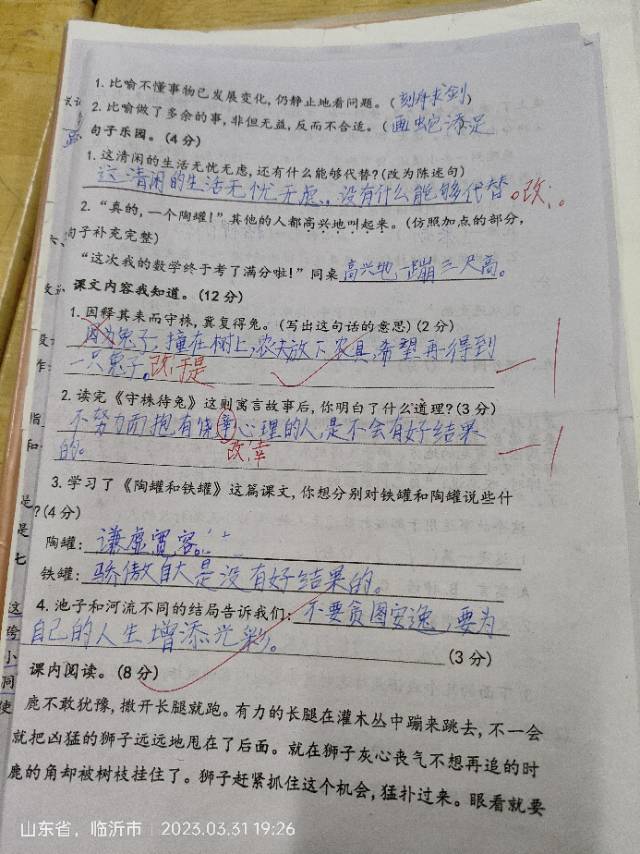 1. 比喻不懂事物已发展变化，仍静止地看问题。(刻舟求剑)
2. 比喻做了多余的事，非但无益，反而不合适。(画蛇添足
句子乐园。(4分)
1. 这清闲的生活无忧无虑，还有什么能够代替？(改为陈述句)
这清闲的生活无忧无虑，没有什么能够代替。改：。
2. “真的，一个陶罐！”其他的人都高兴地叫起来。(仿照加点的部分，
句子补充完整)
“这次我的数学终于考了满分啦！”同桌高兴地一蹦三尺高。
课文内容我知道。(12分)
1. 因释其耒而守株，冀复得兔。(写出这句话的意思)(2分)
因为兔子，撞在树上，农夫放下农具，希望再得到
一只兔子。改：于是 —1
2. 读完《守株待兔》这则寓言故事后，你明白了什么道理？(3分)
不努力而抱有侥幸心理的人，是不会有好结果
的。 改：幸 —1
3. 学习了《陶罐和铁罐》这篇课文，你想分别对铁罐和陶罐说些什
？(4分)
陶罐：谦虚宽容。
铁罐：骄傲自大是没有好结果的。
4. 池子和河流不同的结局告诉我们：不要贪图安逸，要为
自己的人生增添光彩。(3分)
课内阅读。(8分)
鹿不敢犹豫，撒开长腿就跑。有力的长腿在灌木丛中蹦来跳去，不一会
就把凶猛的狮子远远地甩在了后面。就在狮子灰心丧气不想再追的时
鹿的角却被树枝挂住了。狮子赶紧抓住这个机会，猛扑过来。眼看就要
山东省，临沂市 | 2023.03.31 19:26